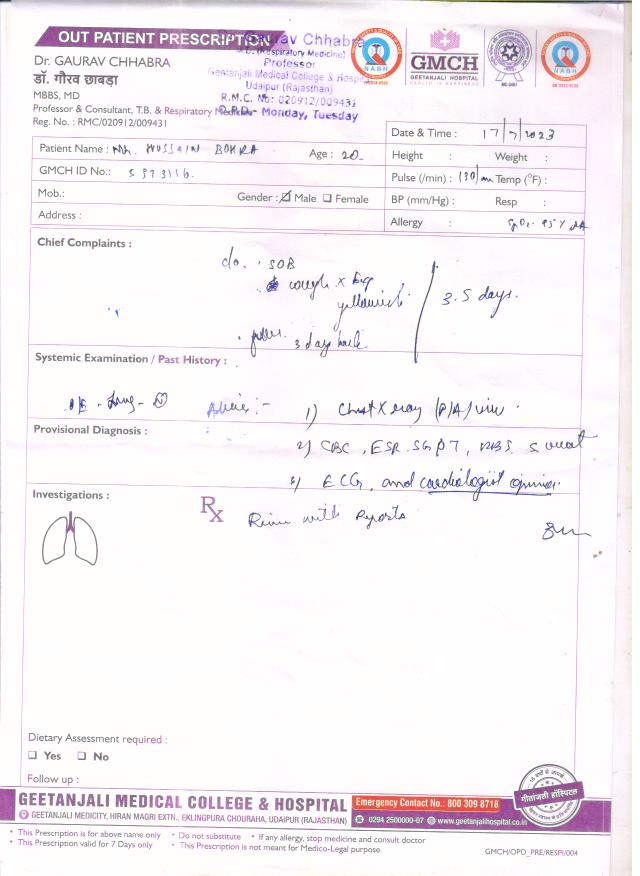 OUT PATIENT PRESCRIPTION
Gaurav Chhabra
M.D. (Respiratory Medicine)
Professor
Geetanjali Medical College & Hospi
Udaipur (Rajasthan)
R.M.C. No: 020912/009431
O.P.D.- Monday, Tuesday
NABH
GMCH
GEETANJALI HOSPITAL
NABH
Dr. GAURAV CHHABRA
डॉ. गौरव छाबड़ा
MBBS, MD
Professor & Consultant, T.B. & Respiratory Medicine
Reg. No. : RMC/020912/009431
Date & Time : 17/7/2023
Patient Name : Mr. HUSSAIN BOHRA Age : 20
Height : Weight :
GMCH ID No.:
Pulse (/min) : 130/m Temp (°F) :
Mob.: Gender : Male Female
BP (mm/Hg) : Resp :
Address :
Allergy : SpO2- 95%
Chief Complaints :
c/o. SOB
cough x
yellowish
3-5 days.
3 day back
Systemic Examination / Past History :
Advice :- 1) Chest X ray (P/A) view
Provisional Diagnosis :
2) CBC, ESR, SGPT, RBS, S creat
3) ECG, and cardiologist opinion
Investigations :
Rx
with Reports
Dietary Assessment required :
Yes No
Follow up :
GEETANJALI MEDICAL COLLEGE & HOSPITAL
Emergency Contact No.: 800 309 8718
GEETANJALI MEDICITY, HIRAN MAGRI EXTN., EKLINGPURA CHOURAHA, UDAIPUR (RAJASTHAN) 0294 2500000-07 www.geetanjalihospital.co.in
गीतांजली हॉस्पिटल
• This Prescription is for above name only • Do not substitute • If any allergy, stop medicine and consult doctor
• This Prescription valid for 7 Days only • This Prescription is not meant for Medico-Legal purpose.
GMCH/OPD_PRE/RESPI/004